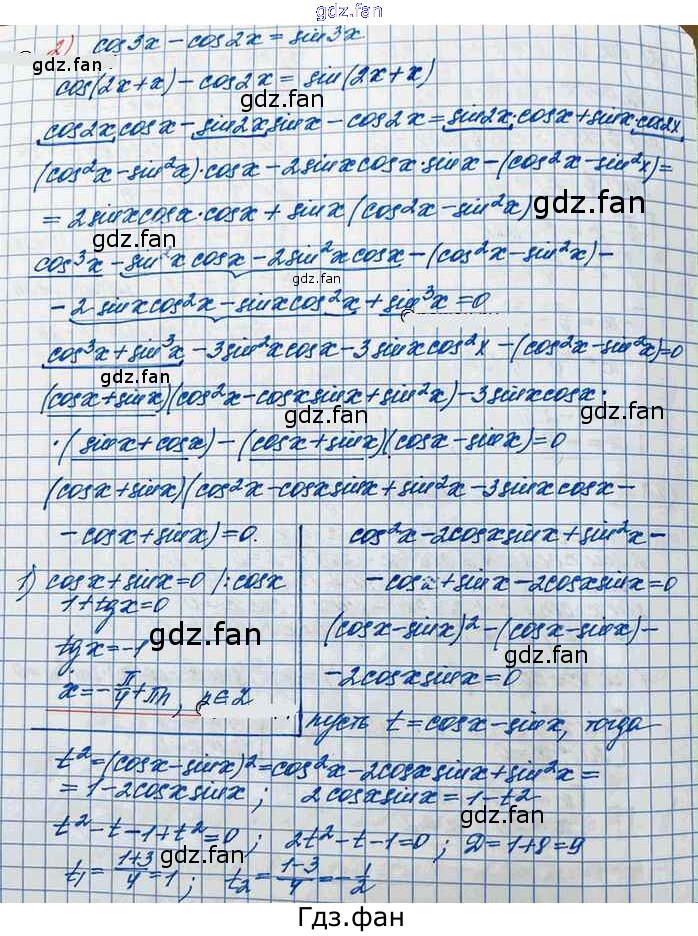 gdz.fan
2) cos3x - cos2x = sin3x
gdz.fan
cos(2x+x) - cos2x = sin(2x+x)
gdz.fan
cos2x cosx - sin2x sinx - cos2x = sin2x·cosx + sinx·cos2x
gdz.fan
(cos²x - sin²x)·cosx - 2sinxcosx·sinx - (cos²x - sin²x) =
= 2sinxcosx·cosx + sinx(cos2x - sin²x)
gdz.fan
gdz.fan
cos³x - sin²x cosx - 2sin²x cosx - (cos²x - sin²x) -
gdz.fan
- 2 sinxcos²x - sinxcos²x + sin³x = 0
gdz.fan
cos³x + sin³x - 3sin²xcosx - 3sinxcos²x - (cos²x - sin²x) = 0
gdz.fan
(cosx + sinx)(cos²x - cosxsinx + sin²x) - 3sinxcosx·
gdz.fan
·(sinx + cosx) - (cosx + sinx)(cosx - sinx) = 0
gdz.fan
(cosx + sinx)(cos²x - cosxsinx + sin²x - 3sinxcosx -
- cosx + sinx) = 0.
1) cosx + sinx = 0 /:cosx
1 + tgx = 0
tgx = -1
gdz.fan
x = -π/4 + πn, n∈Z
cos²x - 2cosxsinx + sin²x -
gdz.fan
- cosx + sinx - 2cosxsinx = 0
(cosx - sinx)² - (cosx - sinx) -
gdz.fan
- 2cosxsinx = 0
пусть t = cosx - sinx, тогда
t² = (cosx - sinx)² = cos²x - 2cosxsinx + sin²x =
gdz.fan
= 1 - 2cosxsinx; 2cosxsinx = 1 - t²
t² - t - 1 + t² = 0; 2t² - t - 1 = 0; D = 1 + 8 = 9
gdz.fan
gdz.fan
t₁ = (1+3)/4 = 1; t₂ = (1-3)/4 = -1/2
Гдз.фан